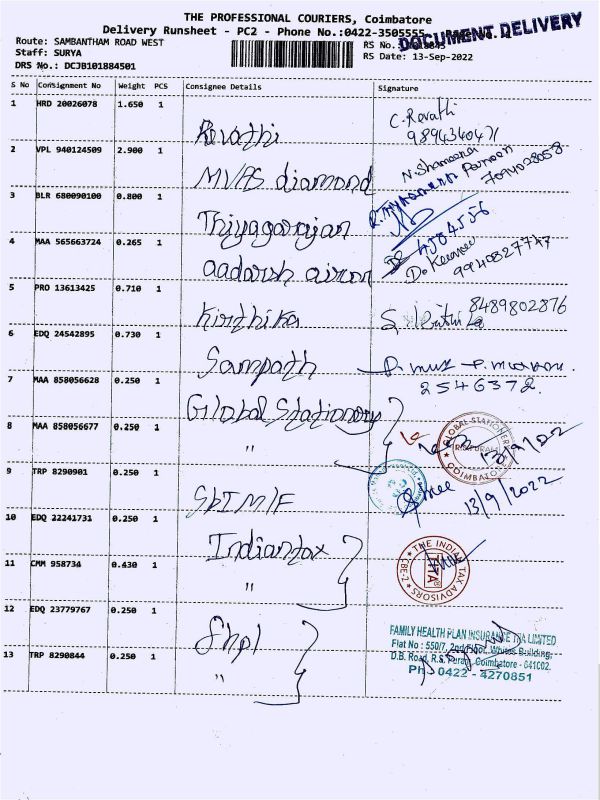 THE PROFESSIONAL COURIERS, Coimbatore
Delivery Runsheet - PC2 - Phone No.:0422-3505555
DOCUMENT DELIVERY
Route: SAMBANTHAM ROAD WEST
RS No.
Staff: SURYA
RS Date: 13-Sep-2022
DRS No.: DCJB101884501
S No Consignment No Weight PCS Consignee Details Signature
1 HRD 20026078 1.650 1 Revathi C. Revathi
9894340471
2 VPL 940124509 2.900 1 MVAS diamond N. Shameena Parveen
7094028058
3 BLR 680090100 0.800 1 Thiyagarajan
4584556
4 MAA 565663724 0.265 1 aadarsh aircon
9940827747
5 PRO 13613425 0.710 1 Kirthika 8489802876
6 EDQ 24542895 0.730 1 Sampath
2546372.
7 MAA 858056628 0.250 1 Global Stationery
8 MAA 858056677 0.250 1 "
GLOBAL STATIONERY
COIMBATORE
13/9/2022
9 TRP 8290901 0.250 1 SbI M/F
13/9/2022
10 EDQ 22241731 0.250 1 Indiantax
11 CMM 958734 0.430 1 "
THE INDIA TAX ADVISORS
CBE-2
ITA
12 EDQ 23779767 0.250 1 fhpl
13 TRP 8290844 0.250 1 "
FAMILY HEALTH PLAN INSURANCE TPA LIMITED
Flat No : 550/7, 2nd Floor, Building,
D.B. Road, R.S. Puram, Coimbatore - 641002.
Ph : 0422 - 4270851